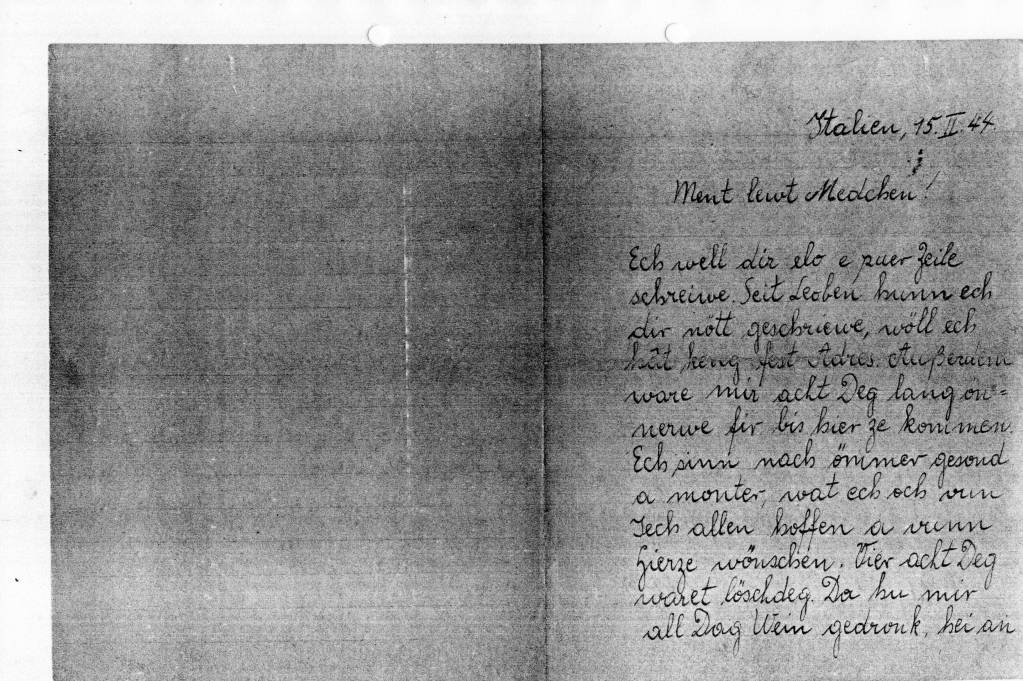 Italien, 15. II. 44.
Ment lewt Medchen!
Ech well dir elo e puer Zeile
schreiwe. Seit Leoben hunn ech
dir nött geschriewe, wöll ech
hat keng fest Adres. Außerdem
ware mir acht Deg lang ön=
nerwe fir bis hier ze kommen.
Ech sinn nach ömmer gesond
a monter, wat ech och vun
Iech allen hoffen a vunn
Hierze wönschen. Vier acht Deg
waret löschdeg. Do hu mir
all Dag Wein gedronk, hei an